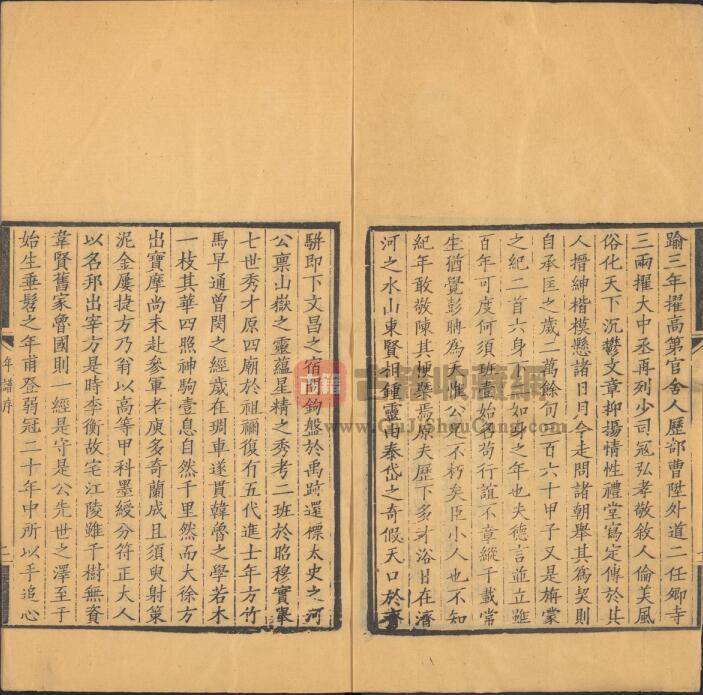 踰三年擢高第官舍人歷部曹陞外道二任卿寺
三兩擢大中丞再列少司寇弘孝敬敘人倫美風
俗化天下沉鬱文章抑揚情性禮堂寫定傳於其
人搢紳楷模懸諸日月今走問諸朝舉其為契則
自承匡之歲二萬餘旬二百六十甲子又是旃蒙
之紀二首六身下如身之年也夫德言並立雖
百年可度何須班壹始名苟行誼不章縱千載常
生猶覺彭聃為夭惟公是不朽矣臣小人也不知
紀年敢敬陳其梗槩焉原夫歷下多才浴日在濟
河之水山東賢相鍾靈由泰岱之奇假天口於齊
駢即下文昌之宿問鉤盤於禹跡還標太史之河
公稟山嶽之靈蘊星精之秀考二班於昭穆實舉
七世秀才原四廟於祖禰復有五代進士年方竹
馬早通曾閔之經歲在琱車遂貫韓魯之學若木
一枝其華四照神駒壹息自然千里然而大徐方
出寶摩尚未赴參軍老庾多奇蘭成且須臾射策
泥金屢捷方乃翁以高等甲科墨綬分符正大人
以名邦出宰方是時李衡故宅江陵雖千樹無資
韋賢舊家魯國則一經是守是公先世之澤至于
始生垂髫之年甫登弱冠二十年中所以手追心
年譜序
二
古籍收藏網
GuJiShouCang.Com